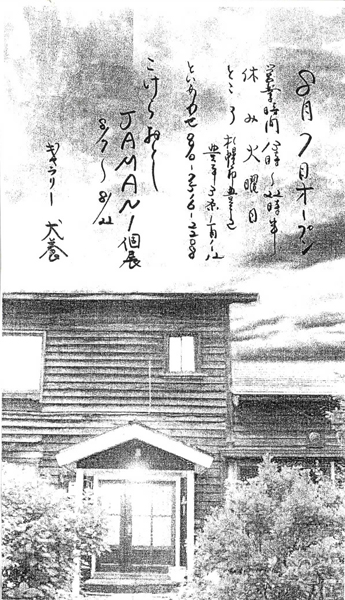 8月7日オープン
営業時間 〜22時半
休み火曜日
ところ 札幌市豊平区
豊平3条1丁目1-12
といあわせ
こけらおとし
JAMANI個展
8/7〜8/22
ギャラリー 犬養